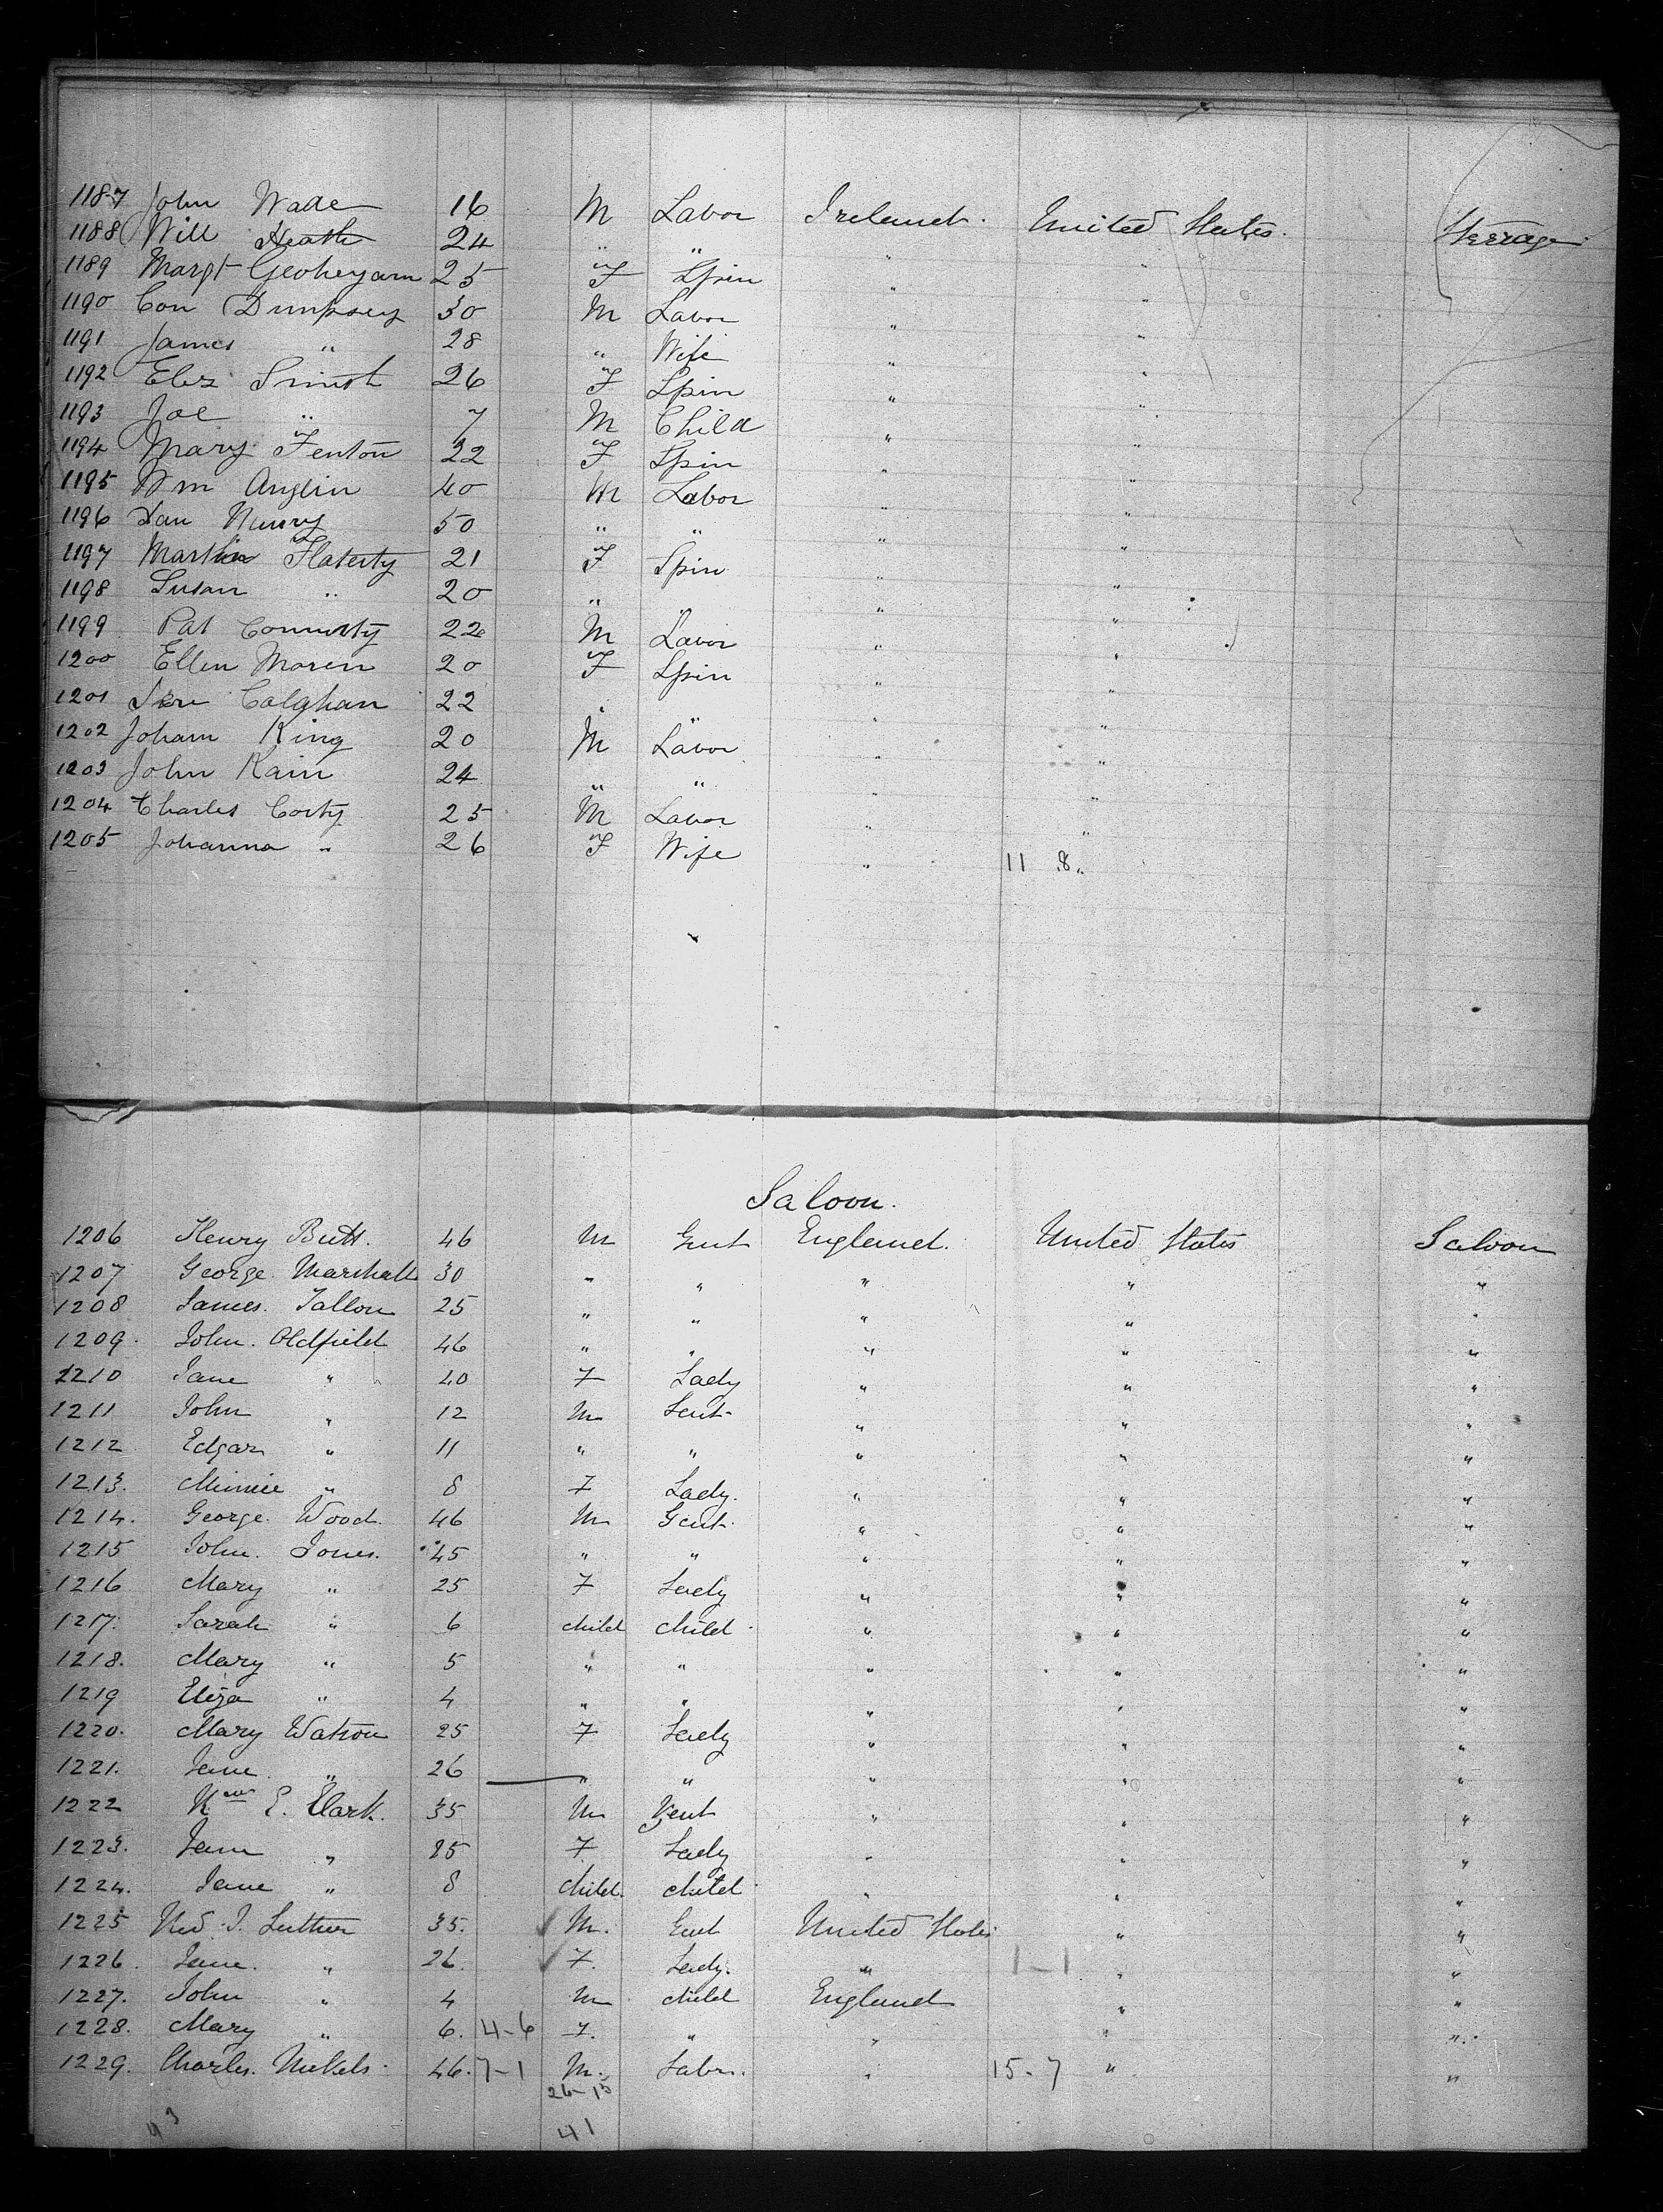 1187 John Wade 16 M Labor Ireland. United States. Steerage
1188 Will Heath 24 " " " "
1189 Margt Geoheyam 25 F Spin " "
1190 Con Dumpsey 30 M Labor " "
1191 James " 28 " Wife " "
1192 Eliz Smith 26 F Spin " "
1193 Joe " 7 M Child " "
1194 Mary Fenton 22 F Spin " "
1195 Wm Anglin 40 M Labor " "
1196 Dan 50 " " " "
1197 Flaterty 21 F Spin " "
1198 Susan " 20 " " " "
1199 Pat 22 M Labor " "
1200 Ellen Moren 20 F Spin " "
1201 Colghan 22 " " " "
1202 Joham King 20 M Labor " "
1203 John Kain 24 " " " "
1204 Charles Corty 25 M Labor " "
1205 Johanna " 26 F Wife " " 11 8
Saloon.
1206 Henry Butt. 46 M Gent England. United States Saloon
1207 George Marshall 30 " " " " "
1208 James. Tallon 25 " " " " "
1209. John. Oldfield 46 " " " " "
1210 Jane " 40 F Lady " " "
1211 John " 12 M Gent " " "
1212 Edgar " 11 " " " " "
1213. Minnie " 8 F Lady. " " "
1214. George. Wood. 46 M Gent. " " "
1215 John. Jones. 45 " " " " "
1216 Mary " 25 F Lady " " "
1217. Sarah " 6 child child " " "
1218. Mary " 5 " " " " "
1219 Eliza " 4 " " " " "
1220. Mary Watson 25 F Lady " " "
1221. Jane " 26 " " " " "
1222 Wm E. Clark. 35 M Gent " " "
1223. Jane " 25 F Lady " " "
1224. Jane " 8 child. child " " "
1225 J. Luther 35. M. Gent United States " "
1226. Jane. " 26. F. Lady. " 1-1 " "
1227. John " 4 M child England " "
1228. Mary " 6. 4-6 F. " " " "
1229. Charles. Nickels 46. 7-1 M. Labr. " 15-7 " "
26-15
41